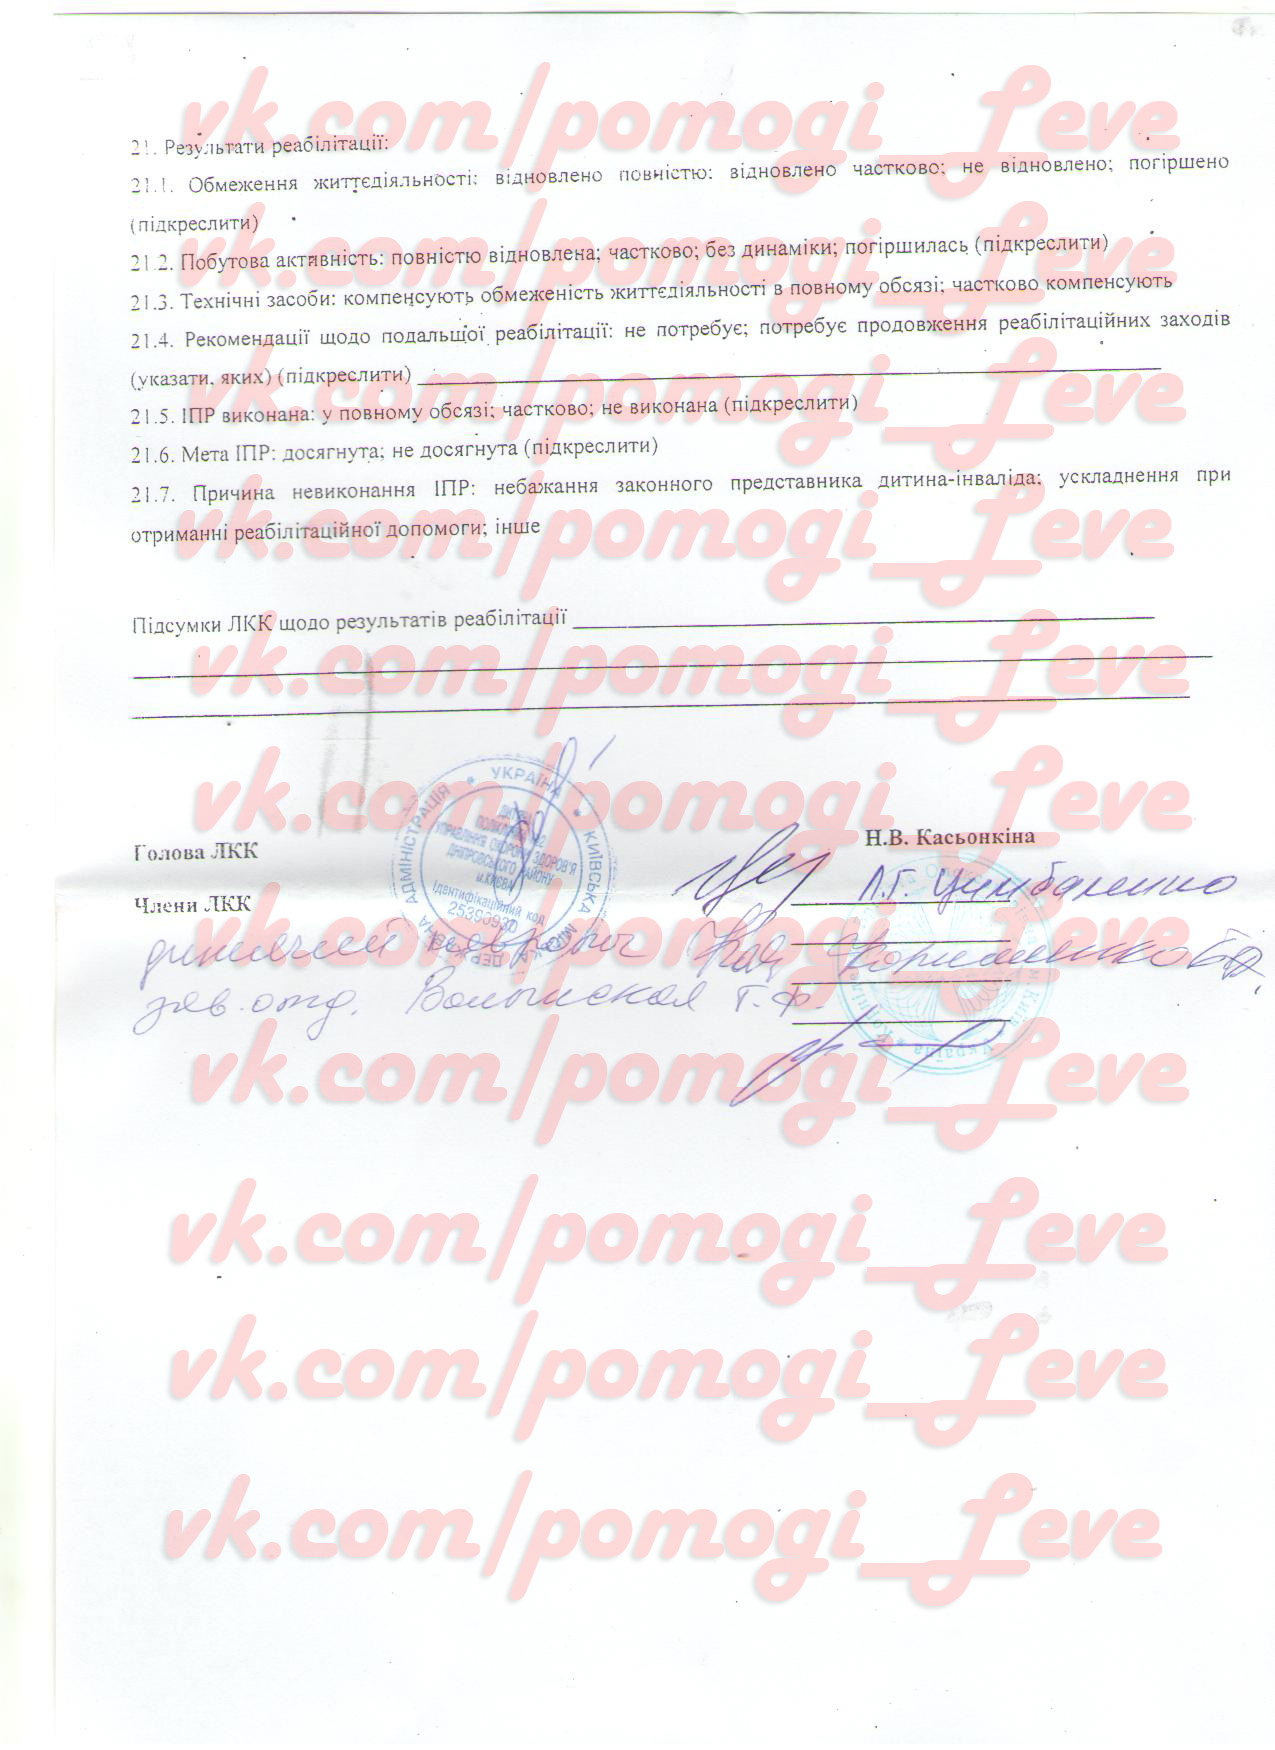 vk.com/pomogi_Leve
21. Результати реабілітації:
21.1. Обмеження життєдіяльності: відновлено повністю: відновлено частково; не відновлено; погіршено
(підкреслити)
vk.com/pomogi_Leve
21.2. Побутова активність: повністю відновлена; частково; без динаміки; погіршилась (підкреслити)
21.3. Технічні засоби: компенсують обмеженість життєдіяльності в повному обсязі; частково компенсують
21.4. Рекомендації щодо подальшої реабілітації: не потребує; потребує продовження реабілітаційних заходів
(указати, яких) (підкреслити)
vk.com/pomogi_Leve
21.5. ІПР виконана: у повному обсязі; частково; не виконана (підкреслити)
21.6. Мета ІПР: досягнута; не досягнута (підкреслити)
21.7. Причина невиконання ІПР: небажання законного представника дитина-інваліда; ускладнення при
отриманні реабілітаційної допомоги; інше
vk.com/pomogi_Leve
Підсумки ЛКК щодо результатів реабілітації
vk.com/pomogi_Leve
vk.com/pomogi_Leve
УКРАЇНА * КИЇВСЬКА МІСЬКА ДЕРЖАВНА АДМІНІСТРАЦІЯ *
УПРАВЛІННЯ ОХОРОНИ ЗДОРОВ'Я
ДНІПРОВСЬКОГО РАЙОНУ
м.КИЄВА
Ідентифікаційний код
Голова ЛКК
Н.В. Касьонкіна
Члени ЛКК
Л.Г. Цимбаленко
vk.com/pomogi_Leve
дитячий невролог
зав. отд. Волынская Т.Ф.
Україна
vk.com/pomogi_Leve
vk.com/pomogi_Leve
vk.com/pomogi_Leve
vk.com/pomogi_Leve